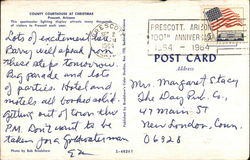 COUNTY COURTHOUSE AT CHRISTMAS
Prescott, Arizona
This spectacular lighting display attracts many thousands
of visitors to Prescott each year.
Lots of excitement here.
Barry will speak from
these steps tomorrow.
Big parade and lots
of parties. Hotel and
motels all booked solid
getting out of town this
P.M. Don't want to be
taken for a Goldwater man
Ed
Photo by Bob Bradshaw
PRESCOTT, ARIZONA
100TH ANNIVERSARY
1864 - 1964
POST CARD
Address
Mrs. Margaret Stacy
The Day Pub. Co.,
47 Main St
New London, Conn.
06320